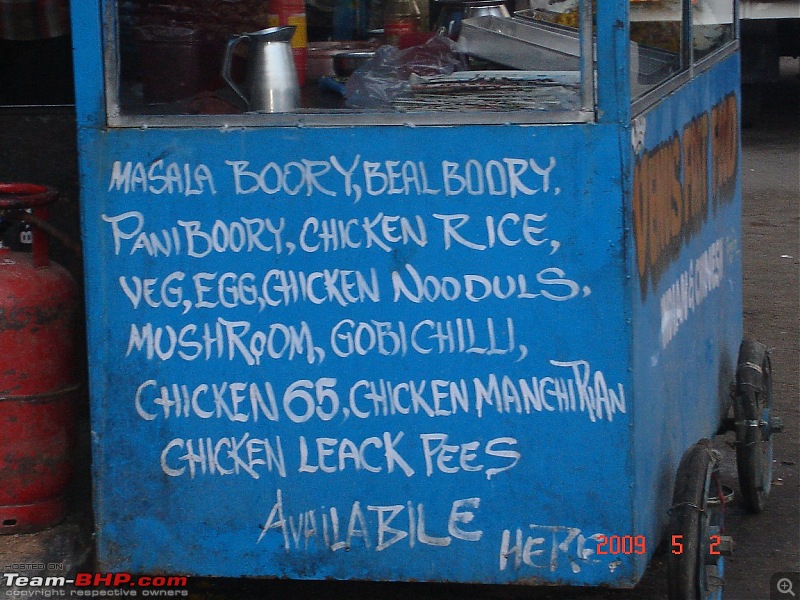 MASALA BOORY, BEAL BOORY.
PANI BOORY, CHICKEN RICE,
VEG, EGG, CHICKEN NOODULS.
MUSHROOM, GOBI CHILLI,
CHICKEN 65, CHICKEN MANCHIRIAN
CHICKEN LEACK PEES
AVAILABILE HERE.
FAST FOOD
INDIAN & CHINESE
2009 5 2
HOSTED ON
Team-BHP.com
copyright respective owners